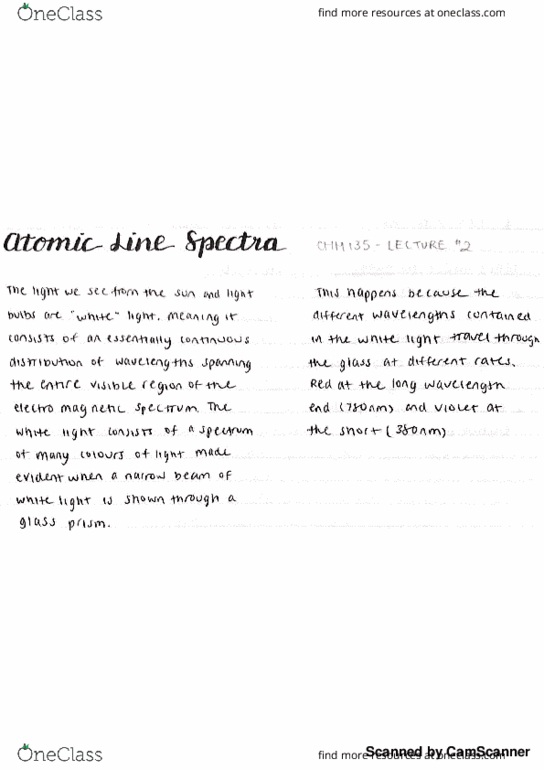 OneClass
find more resources at oneclass.com
Atomic Line Spectra
CHM135 - LECTURE #2
The light we see from the sun and light
bulbs are "white" light, meaning it
consists of an essentially continuous
distribution of wavelengths spanning
the entire visible region of the
electro magnetic spectrum. The
white light consists of a spectrum
of many colours of light made
evident when a narrow beam of
white light is shown through a
glass prism.
This happens because the
different wavelengths contained
in the white light travel through
the glass at different rates.
Red at the long wavelength
end (780nm) and violet at
the short (380nm)
OneClass
find more resources at oneclass.com
Scanned by CamScanner